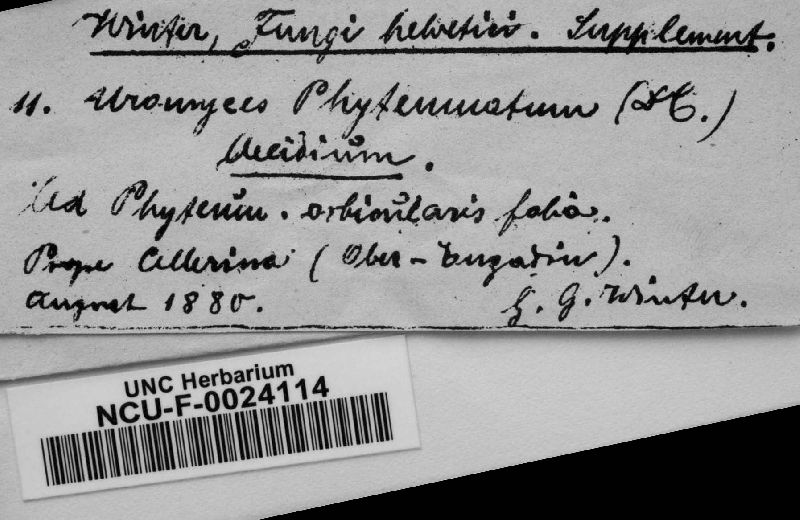 Winter, Fungi helvetici. Supplement.
11. Uromyces Phyteumatum (DC.)
Aecidium.
Ad Phyteum. orbicularis folia.
Prope Cellerina (Ober-Engadin).
August 1880. G. Winter.
UNC Herbarium
NCU-F-0024114